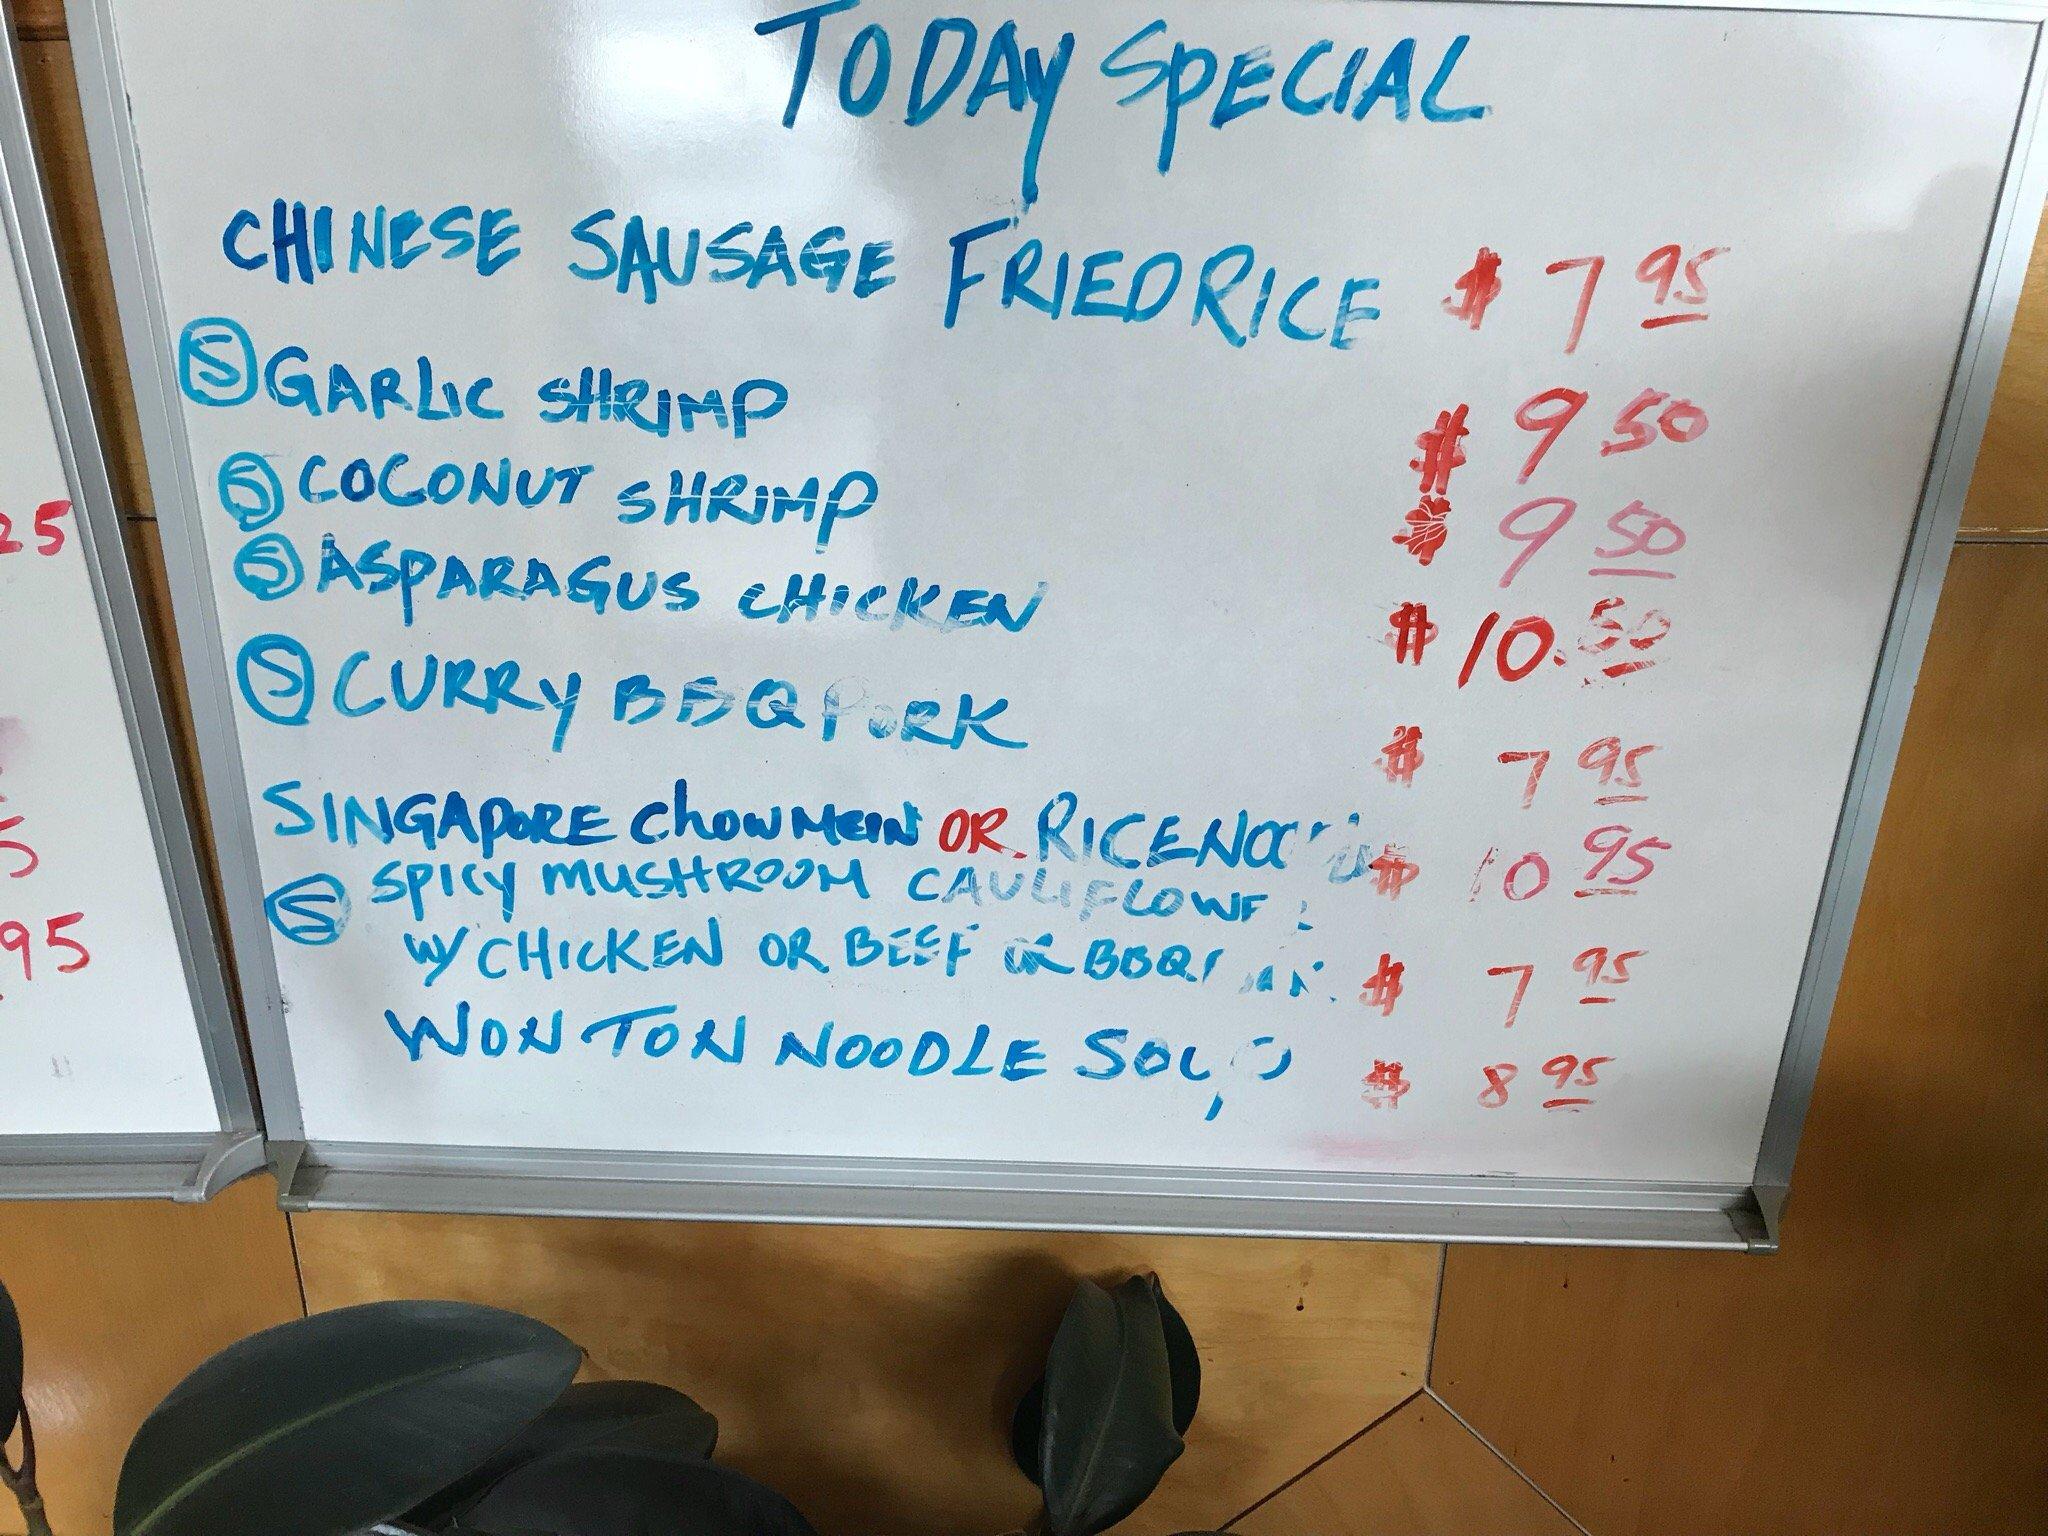 TODAY SPECIAL
CHINESE SAUSAGE FRIED RICE $ 7 95
Ⓢ GARLIC SHRIMP $ 9 50
Ⓢ COCONUT SHRIMP $ 9 50
Ⓢ ASPARAGUS CHICKEN $ 10.50
Ⓢ CURRY BBQ PORK $ 7 95
SINGAPORE CHOW MEIN OR RICE $ 10 95
Ⓢ SPICY MUSHROOM CAULIFLOWE
W/ CHICKEN OR BEEF OR BBQ $ 7 95
WON TON NOODLE SOUP $ 8 95
25
5
95